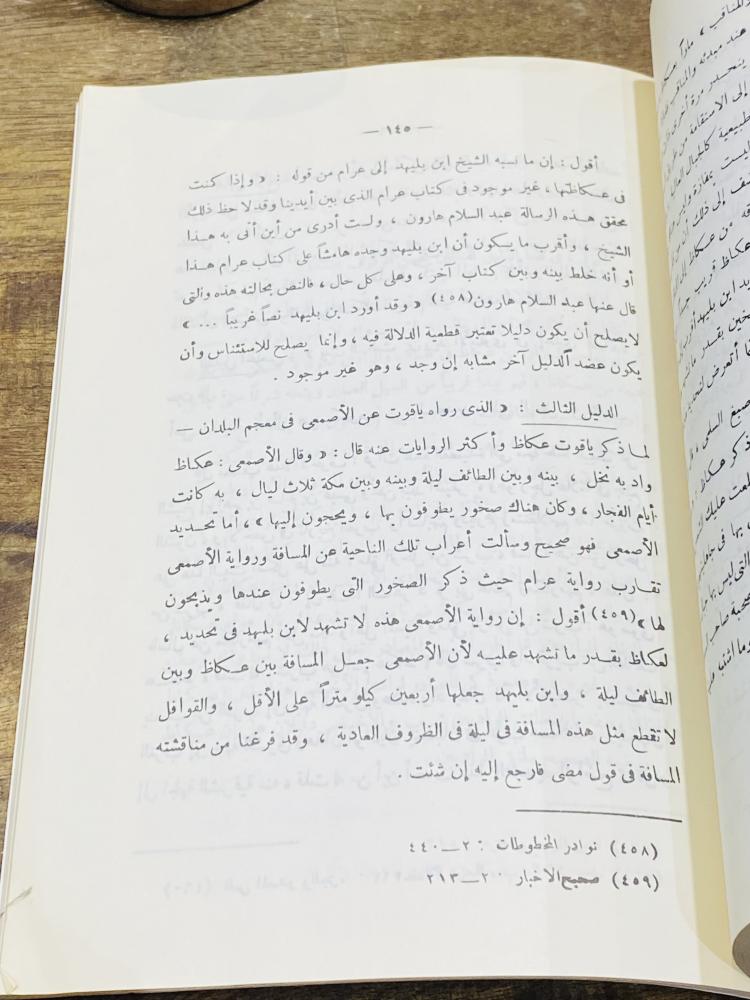 — ١٤٥ —
أقول : إن ما نسبه الشيخ ابن بليهد إلى عرام من قوله : « وإذا كنت
فى عكاظتها ، غير موجود فى كتاب عرام الذى بين أيدينا وقد لاحظ ذلك
محقق هذه الرسالة عبد السلام هارون ، ولست أدرى من أين أتى به هذا
الشيخ ، وأقرب ما يكون أن ابن بليهد وجده هامشاً على كتاب عرام هذا
أو أنه خلط بينه وبين كتاب آخر ، وعلى كل حال ، فالنص بحالته هذه والتى
قال عنها عبد السلام هارون(٤٥٨) « وقد أورد ابن بليهد نصاً غريباً ... »
لا يصلح أن يكون دليلا تعتبر قطعية الدلالة فيه ، وإنما يصلح للاستئناس وأن
يكون عضد الدليل آخر مشابه إن وجد ، وهو غير موجود .
الدليل الثالث : « الذى رواه ياقوت عن الأصمعى فى معجم البلدان —
لما ذكر ياقوت عكاظ وأكثر الروايات عنه قال : « وقال الأصمعى : عكاظ
واد به نخل ، بينه وبين الطائف ليلة وبينه وبين مكة ثلاث ليال ، به كانت
أيام الفجار ، وكان هناك صخور يطوفون بها ، ويحجون إليها » ، أما تحديد
الأصمعى فهو صحيح وسألت أعراب تلك الناحية عن المسافة ورواية الأصمعى
تقارب رواية عرام حيث ذكر الصخور التى يطوفون عندها ويذبحون
لها »(٤٥٩) أقول : إن رواية الأصمعى هذه لا تشهد لابن بليهد فى تحديد ،
لعكاظ بقدر ما تشهد عليه لأن الأصمعى جعل المسافة بين عكاظ وبين
الطائف ليلة ، وابن بليهد جعلها أربعين كيلو متراً على الأقل ، والقوافل
لا تقطع مثل هذه المسافة فى ليلة فى الظروف العادية ، وقد فرغنا من مناقشته
المسافة فى قول مضى فارجع إليه إن شئت .
(٤٥٨) نوادر المخطوطات : ٢—٤٤٠
(٤٥٩) صحيح الاخبار ٢—٢١٣